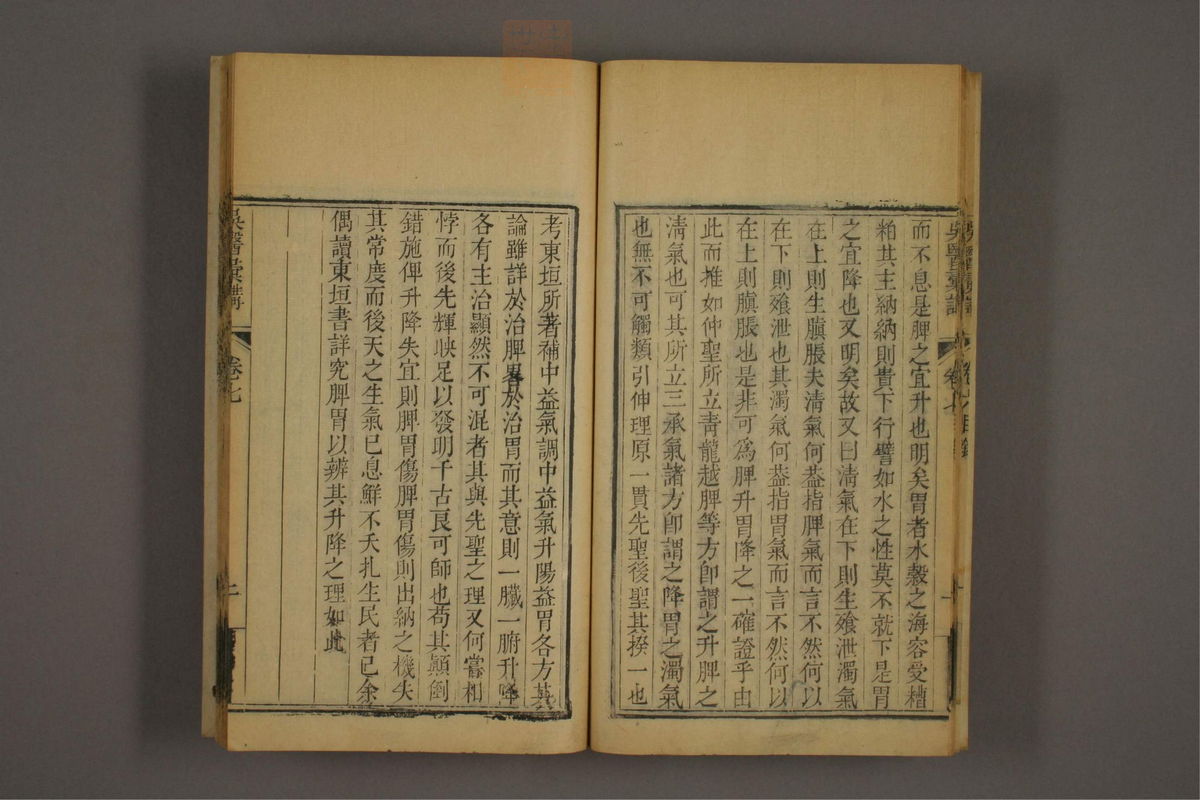 而不息是脾之宜升也明矣胃者水穀之海容受糟
粕其主納納則貴下行譬如水之性莫不就下是胃
之宜降也又明矣故又曰淸氣在下則生飧泄濁氣
在上則生䐜脹夫淸氣何葢指脾氣而言不然何以
在下則飧泄也其濁氣何葢指胃氣而言不然何以
在上則䐜脹也是非可爲脾升胃降之一確證乎由
此而推如仲聖所立靑龍越脾等方卽謂之升脾之
淸氣也可其所立三承氣諸方卽謂之降胃之濁氣
也無不可觸類引伸理原一貫先聖後聖其揆一也
考東垣所著補中益氣調中益氣升陽益胃各方其
論雖詳於治脾畧於治胃而其意則一臟一腑升降
各有主治顯然不可混者其與先聖之理又何嘗相
悖而後先輝映足以發明千古良可師也苟其顚倒
錯施俾升降失宜則脾胃傷脾胃傷則出納之機失
其常度而後天之生氣已息鮮不夭扎生民者已余
偶讀東垣書詳究脾胃以辨其升降之理如此
吳醫彙講
卷七
二